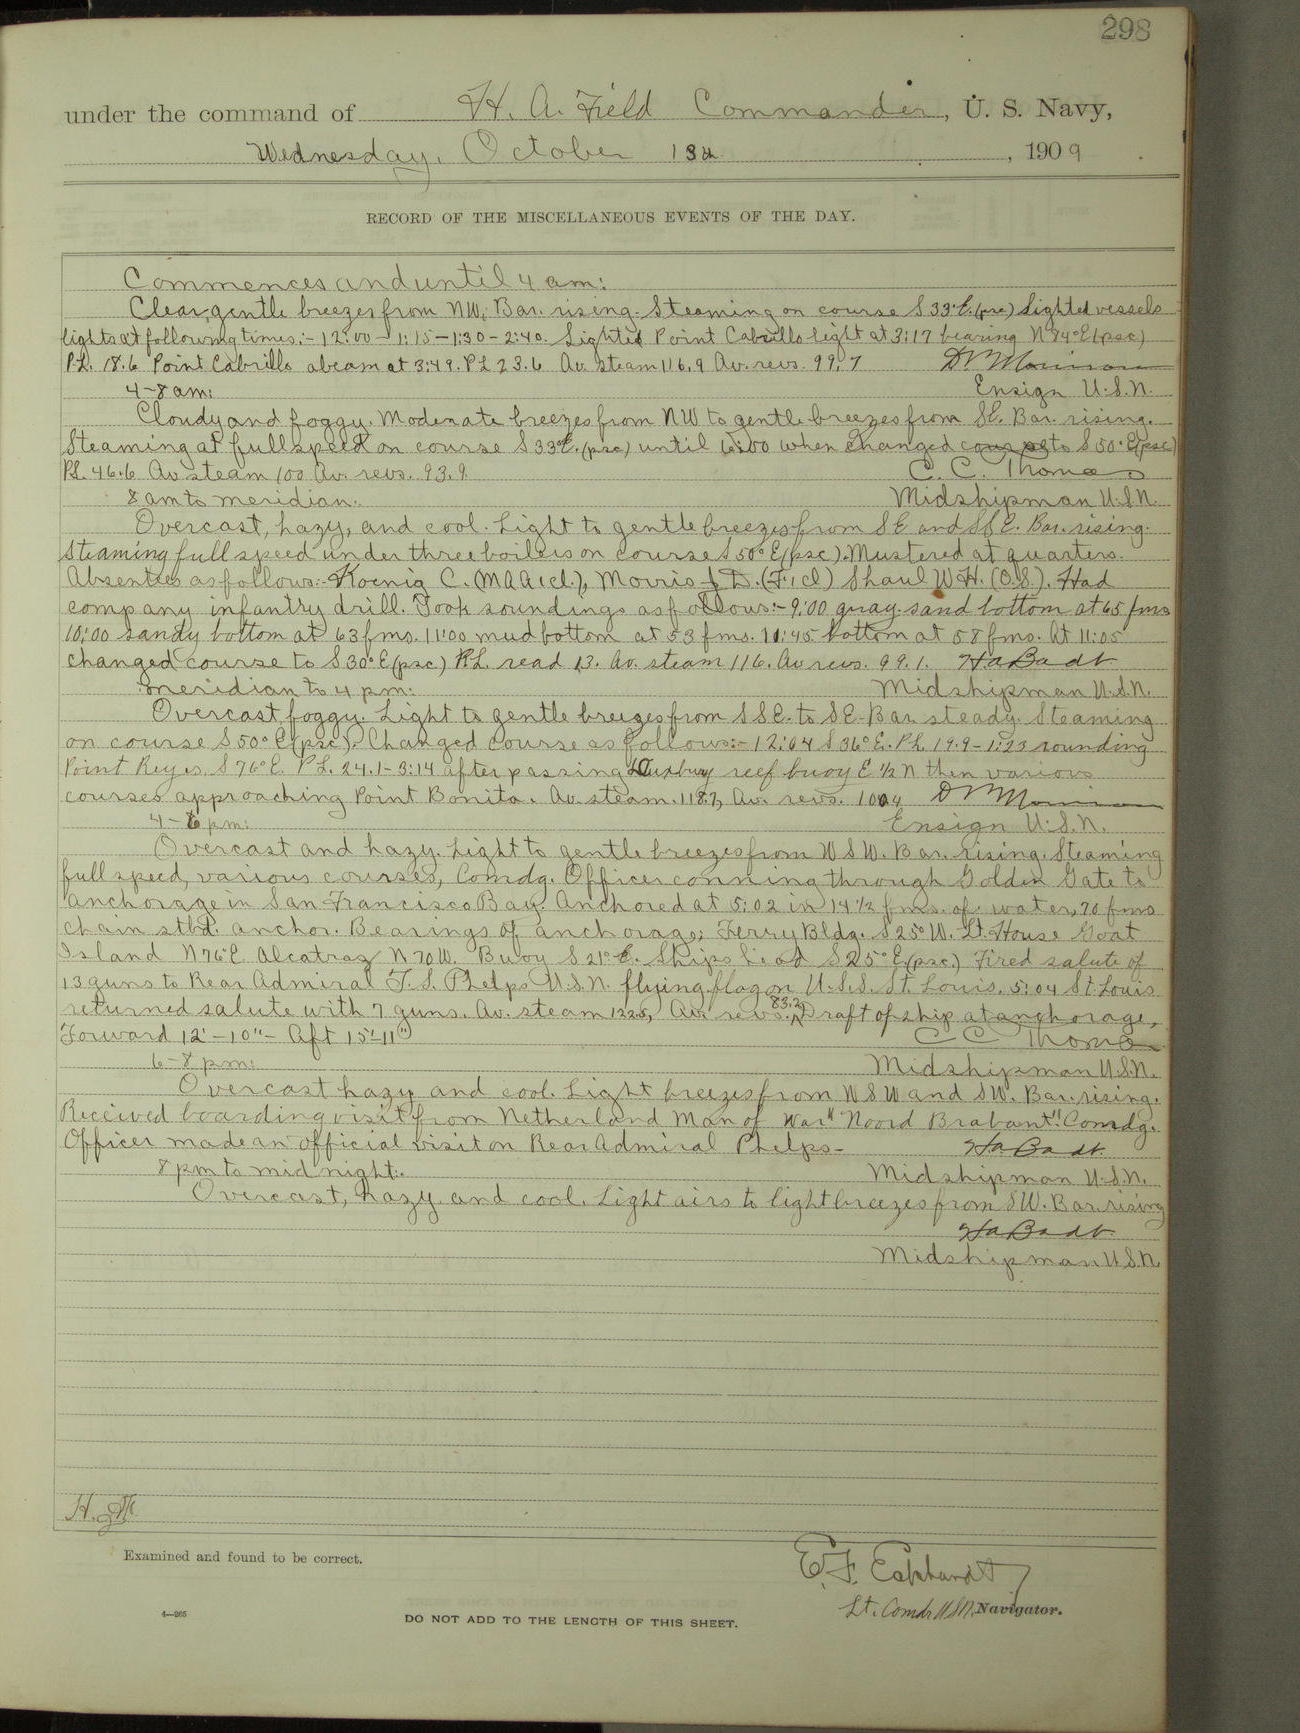 298
under the command of H. A. Field Commander, U. S. Navy,
Wednesday, October 13th, 1909
RECORD OF THE MISCELLANEOUS EVENTS OF THE DAY.
Commences and until 4 am:
Clear, gentle breezes from NW. Bar. rising. Steaming on course S 33° E. (psc) Sighted vessels
lights at following times:- 12:00 - 1:15 - 1:30 - 2:40. Sighted Point Cabrillo light at 3:17 bearing N 74° E (psc)
P.L. 18.6 Point Cabrillo abeam at 3:49. P.L. 23.6 Av. steam 116.9 Av. revs. 99.7
4-8 am: Ensign U.S.N.
Cloudy and foggy. Moderate breezes from NW to gentle breezes from SE. Bar. rising.
Steaming at full speed on course S 33° E. (psc) until 6:00 when changed course to S 50° E (psc)
P.L. 46.6 Av. steam 100 Av. revs. 93.9 C. C. Thomas
8 am to meridian: Midshipman U.S.N.
Overcast, hazy, and cool. Light to gentle breezes from SE and SSE. Bar. rising.
Steaming full speed under three boilers on course S 50° E (psc). Mustered at quarters.
Absentees as follows:- Koenig C. (MAA 1cl.), Morris J. D. (F. 1cl) Shaul W. H. (O.S.). Had
company infantry drill. Took soundings as follows:- 9:00 gray sand bottom at 65 fms
10:00 sandy bottom at 63 fms. 11:00 mud bottom at 53 fms. 11:45 bottom at 58 fms. At 11:05
changed course to S 30° E (psc) P.L. read 13. Av. steam 116. Av revs. 99.1. Ha Badt
meridian to 4 pm: Midshipman U.S.N.
Overcast, foggy. Light to gentle breezes from SSE. to SE. Bar. steady. Steaming
on course S 50° E (psc). Changed course as follows:- 12:04 S 36° E. P.L. 19.9 - 1:23 rounding
Point Reyes S 76° E. P.L. 24.1 - 3:14 after passing Duxbury reef buoy E ½ N then various
courses approaching Point Bonita. Av. steam. 118.7, Av. revs. 100.4
4-6 pm: Ensign U.S.N.
Overcast and hazy. Light to gentle breezes from WSW. Bar. rising. Steaming
full speed, various courses, Comdg. Officer conning through Golden Gate to
anchorage in San Francisco Bay. Anchored at 5:02 in 14 ½ fms. of water, 70 fms
chain stbd. anchor. Bearings of anchorage; Ferry Bldg. S 25° W. Lt. House Goat
Island N 76° E. Alcatraz N 70 W. Buoy S 21° E. Ships head S 25° E (psc.) Fired salute of
13 guns to Rear Admiral T. S. Phelps U.S.N. flying flag on U.S.S. St. Louis. 5:04 St. Louis
returned salute with 7 guns. Av. steam 122.5, Av. revs. 83.2 Draft of ship at anchorage,
Forward 12'-10" - Aft 15'-11" C C Thomas
6-8 pm: Midshipman U.S.N.
Overcast hazy and cool. Light breezes from WSW and SW. Bar. rising.
Received boarding visit from Netherland Man of War "Noord Brabant". Comdg.
Officer made an official visit on Rear Admiral Phelps- Ha Badt
8 pm to midnight: Midshipman U.S.N.
Overcast, hazy and cool. Light airs to light breezes from SW. Bar. rising
Ha Badt
Midshipman U.S.N.
Examined and found to be correct.
E. F. Eckhardt
Lt. Comdr USN, Navigator.
4—265
DO NOT ADD TO THE LENGTH OF THIS SHEET.